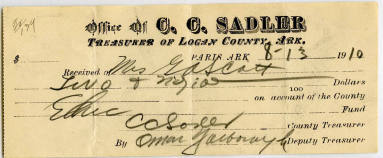 Office Of C. C. SADLER
TREASURER OF LOGAN COUNTY, ARK.
$ PARIS ARK 8-13 1910
Received of Mrs Scott
Two & 100 Dollars
on account of the County
Fund
C C Sadler County Treasurer
By Omar Deputy Treasurer